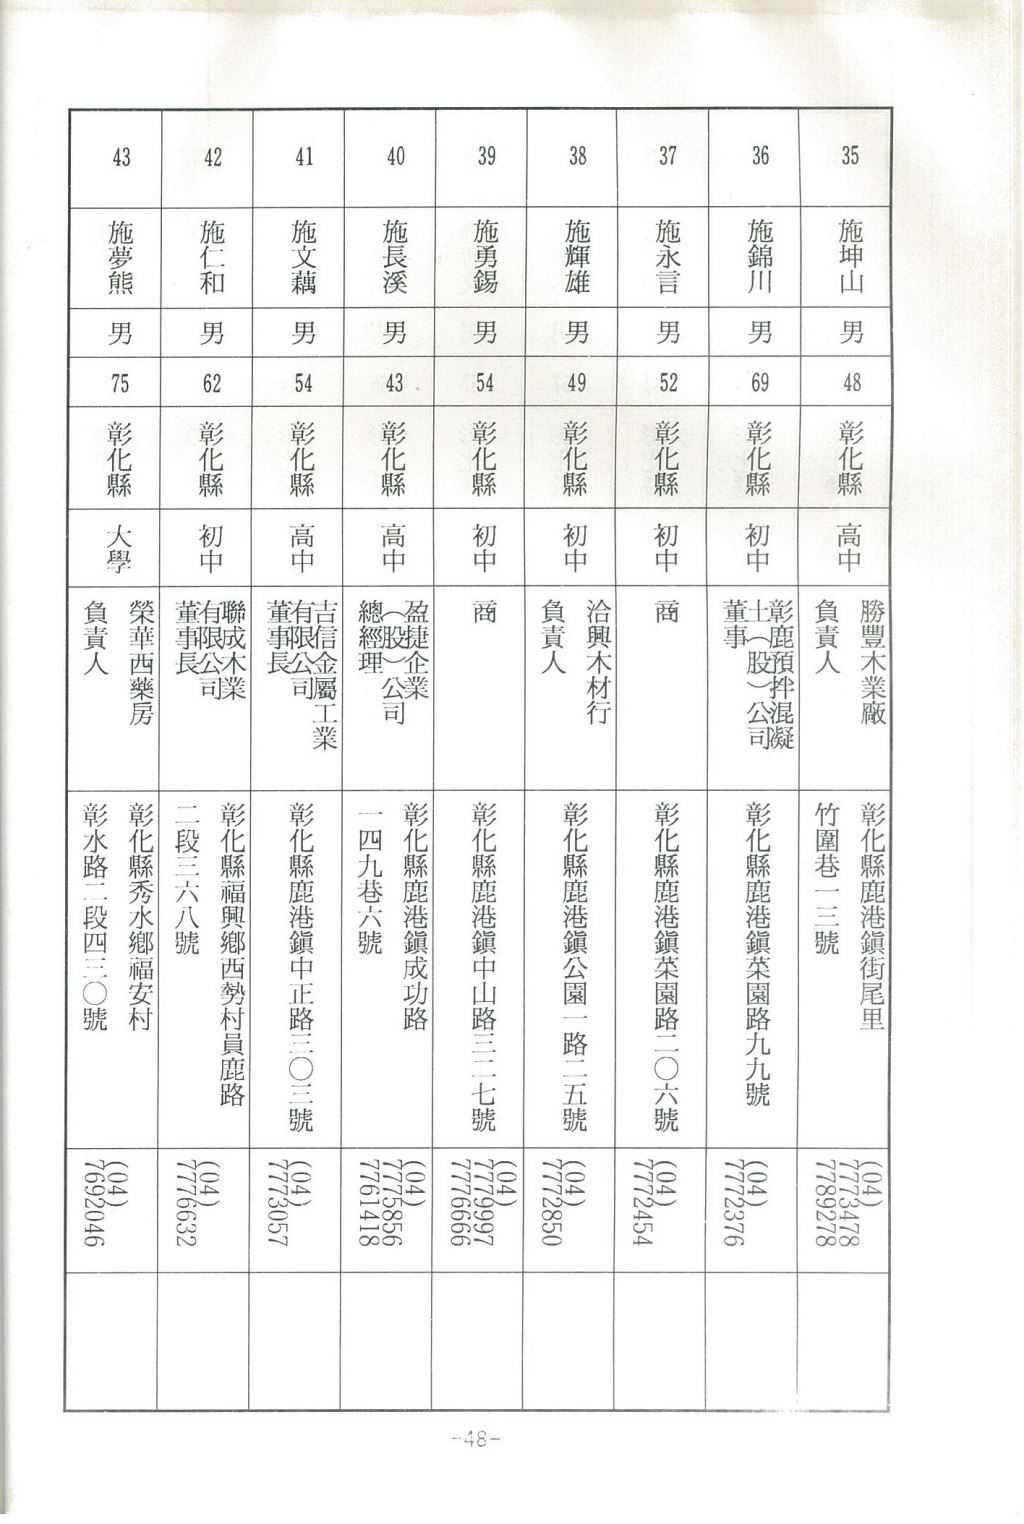 35
施坤山
男
48
彰化縣
高中
勝豐木業廠
負責人
彰化縣鹿港鎮街尾里
竹圍巷一三號
(04)
7773478
7789278
36
施錦川
男
69
彰化縣
初中
彰鹿預拌混凝
土（股）公司
董事
彰化縣鹿港鎮菜園路九九號
(04)
7772376
37
施永言
男
52
彰化縣
初中
商
彰化縣鹿港鎮菜園路二〇六號
(04)
7772454
38
施輝雄
男
49
彰化縣
初中
洽興木材行
負責人
彰化縣鹿港鎮公園一路二五號
(04)
7772850
39
施勇錫
男
54
彰化縣
初中
商
彰化縣鹿港鎮中山路三二七號
(04)
7779997
7776666
40
施長溪
男
43
彰化縣
高中
盈捷企業
（股）公司
總經理
彰化縣鹿港鎮成功路
一四九巷六號
(04)
7775856
7761418
41
施文藕
男
54
彰化縣
高中
吉信金屬工業
有限公司
董事長
彰化縣鹿港鎮中正路三〇三號
(04)
7773057
42
施仁和
男
62
彰化縣
初中
聯成木業
有限公司
董事長
彰化縣福興鄉西勢村員鹿路
二段三六八號
(04)
7776632
43
施夢熊
男
75
彰化縣
大學
榮華西藥房
負責人
彰化縣秀水鄉福安村
彰水路二段四三〇號
(04)
7692046
-48-